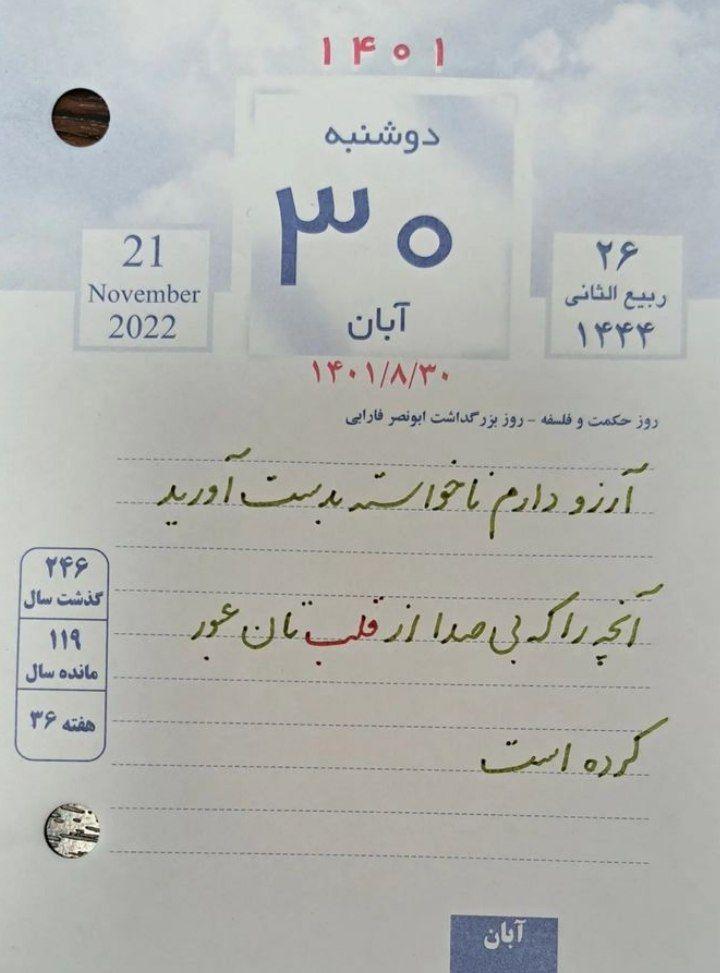 ۱۴۰۱
دوشنبه
۳۰
آبان
21
November
2022
۲۶
ربیع الثانی
۱۴۴۴
۱۴۰۱/۸/۳۰
روز حکمت و فلسفه - روز بزرگداشت ابونصر فارابی
آرزو دارم ناخواسته بدست آورید
آنچه را که بی صدا از قلب تان عبور
کرده است
۲۴۶
گذشت سال
۱۱۹
مانده سال
هفته ۳۶
آبان